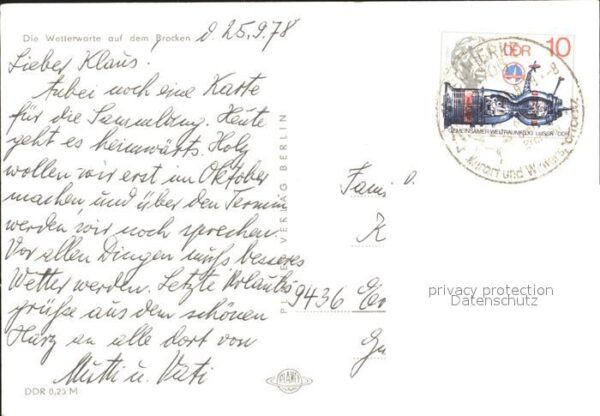 Die Wetterwarte auf dem Brocken
d. 25.9.78
Lieber Klaus.
Anbei noch eine Karte
für die Sammlung. Heute
geht es heimwärts. Holz
wollen wir erst im Oktober
machen und über den Termin
werden wir noch sprechen.
Vor allen Dingen muß besseres
Wetter werden. Letzte Urlaubs-
grüße aus dem schönen
Harz an alle dort von
Mutti u. Vati
DDR 0,25 M
VERLAG BERLIN
PLANET
Fami
K
9436
DDR 10
GEMEINSAMER WELTRAUMFLUG UdSSR-DDR
Kurort und
privacy protection
Datenschutz